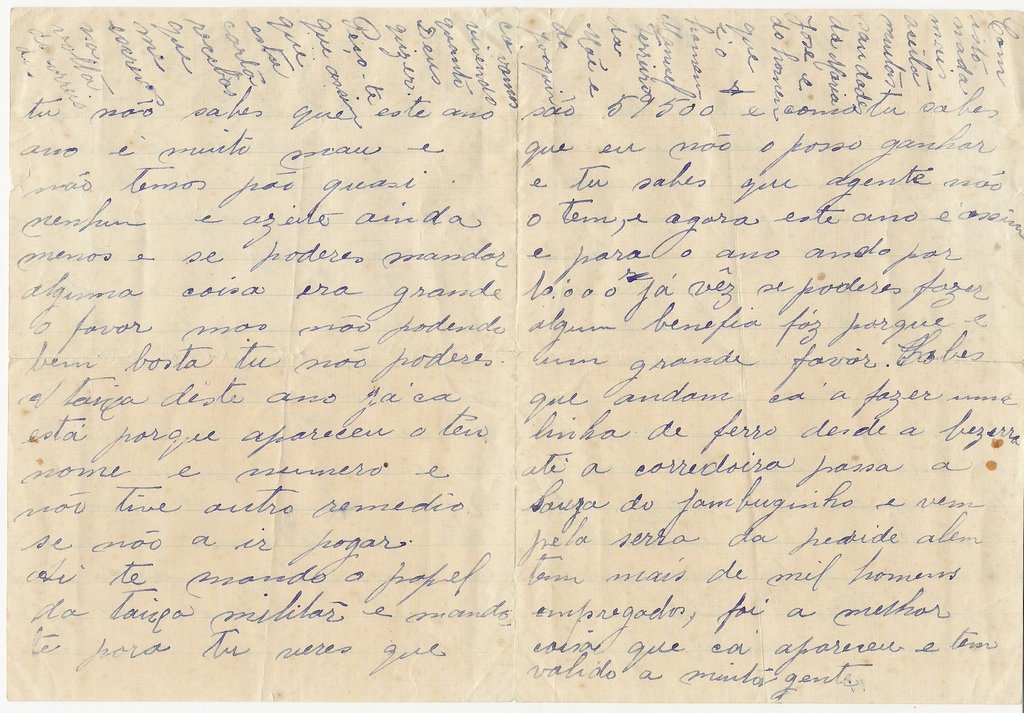 tu não sabes que este ano
ano é muito mau e
não temos pão quasi
nenhun e azeite ainda
menos e se poderes mandar
alguma coisa era grande
o favor mas não podendo
bem bosta tu não poderes.
A taiça deste ano já ca
está porque apareceu o teu
nome e numero e
não tive outro remedio
se não a ir pagar.
Ai te mando o papel
da taiça militár e mando
te para tu veres que
são 59500 e como tu sabes
que eu não o posso ganhar
e tu sabes que agente não
o tem, e agora este ano é assim
e para o ano ando por
10.000 já vêz se poderes fazer
algum benefia fáz porque é
um grande favôr. Sabes
que andam cá a fazer uma
linha de ferro desde a bezerra
até a corredoira passa a
Souza do jambuginho e vem
pela serra da pevide alem
tem mais de mil homens
empregados, foi a melhor
coisa que cá apareceu e tem
valido a muita gente.
Com
isto
manda
mais
aceita
muitas
saudade
da Maria
José e
do homem
que
tio
homem
Manuel
Ferreira
da
Mãe e
do
Joaquim
ca vamos
vivendo
quanto
Deus
quizer.
Peço-te
que assim
que
esta
cartão
recebas
que
me
escrevas
volta